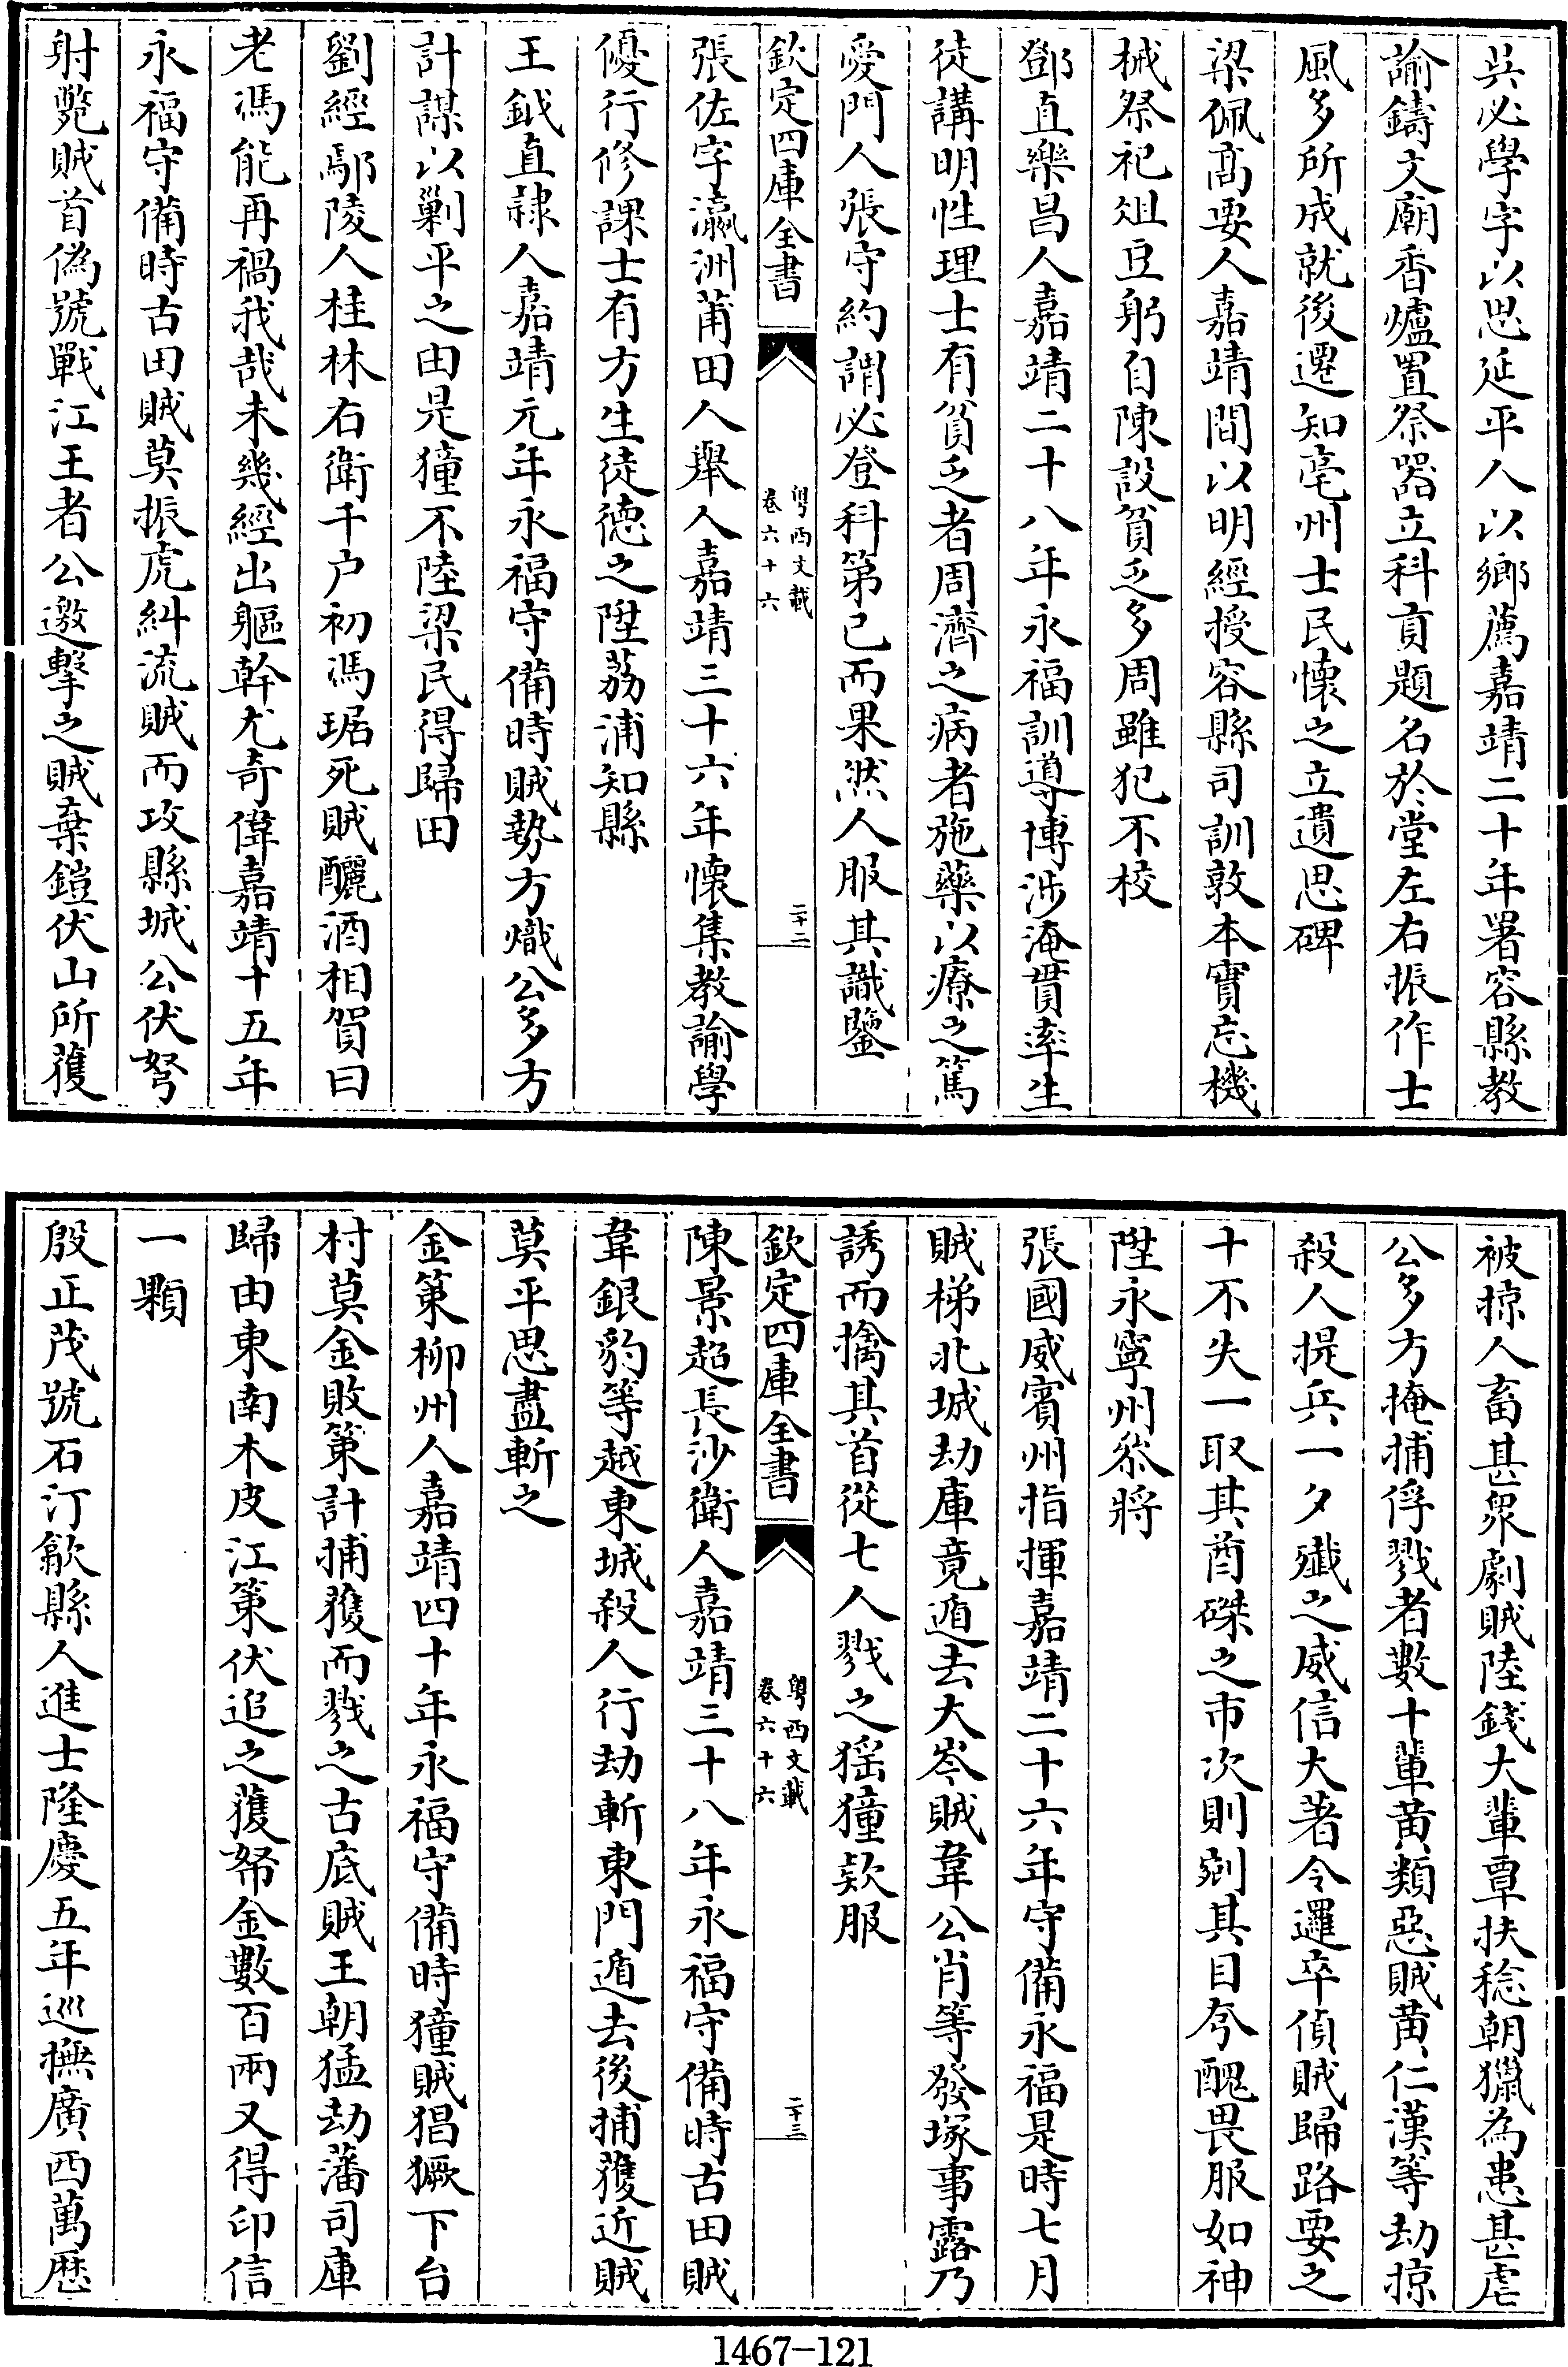 吳必學字以思延平人以鄉薦嘉靖二十年署容縣教
諭鑄文廟香爐置祭器立科貢題名於堂左右振作士
風多所成就後遷知亳州士民懷之立遺思碑
梁佩髙要人嘉靖間以明經授容縣司訓敦本實忘機
械祭祀俎豆躬自陳設貧乏多周雖犯不校
鄧直樂昌人嘉靖二十八年永福訓導博涉淹貫率生
徒講明性理士有貧乏者周濟之病者施藥以療之篤
愛門人張守約謂必登科第已而果然人服其識鑒
欽定四庫全書
粵西文載
卷六十六
二十二
張佐字瀛洲莆田人舉人嘉靖三十六年懷集教諭學
優行修課士有方生徒德之陞荔浦知縣
王鉞直隸人嘉靖元年永福守備時賊勢方熾公多方
計謀以剿平之由是獞不陸梁民得歸田
劉經鄢陵人桂林右衛千户初馮琚死賊釃酒相賀曰
老馮能再禍我哉未幾經出軀幹尤竒偉嘉靖十五年
永福守備時古田賊莫振虎糾流賊而攻縣城公伏弩
射斃賊首偽號戰江王者公邀擊之賊棄鎧伏山所獲
被掠人畜甚衆劇賊陸錢大輩覃扶稔朝獵為患甚虐
公多方掩捕俘戮者數十輩黄類惡賊黄仁漢等劫掠
殺人提兵一夕殲之威信大著令邏卒偵賊歸路要之
十不失一取其酋磔之市次則剜其目夯醜畏服如神
陞永寧州叅將
張國威賓州指揮嘉靖二十六年守備永福是時七月
賊梯北城劫庫竟遁去大岑賊韋公肖等發塚事露乃
誘而擒其首從七人戮之猺獞欵服
欽定四庫全書
粵西文載
卷六十六
二十三
陳景超長沙衛人嘉靖三十八年永福守備時古田賊
韋銀豹等越東城殺人行劫斬東門遁去後捕獲近賊
莫平思盡斬之
金策柳州人嘉靖四十年永福守備時獞賊猖獗下台
村莫金敗策計捕獲而戮之古底賊王朝猛劫藩司庫
歸由東南木皮江策伏追之獲帑金數百兩又得印信
一顆
殷正茂號石汀歙縣人進士隆慶五年巡撫廣西萬歴
1467-121